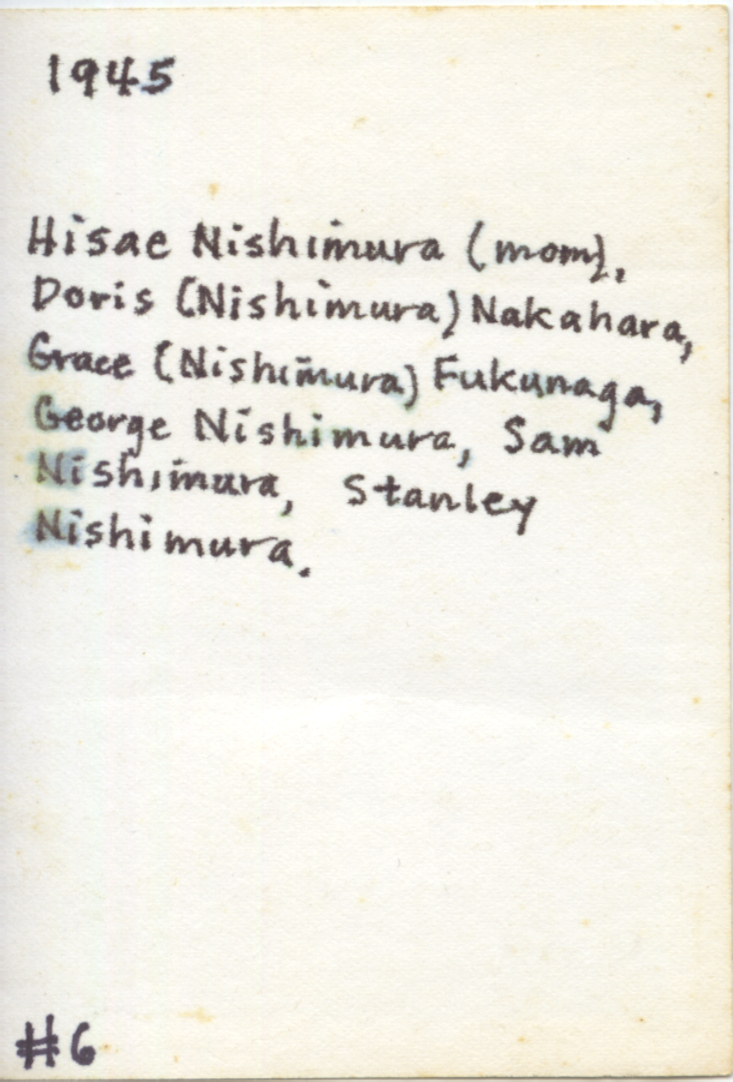 1945
Hisae Nishimura (mom),
Doris (Nishimura) Nakahara,
Grace (Nishimura) Fukunaga,
George Nishimura, Sam
Nishimura, Stanley
Nishimura.
#6